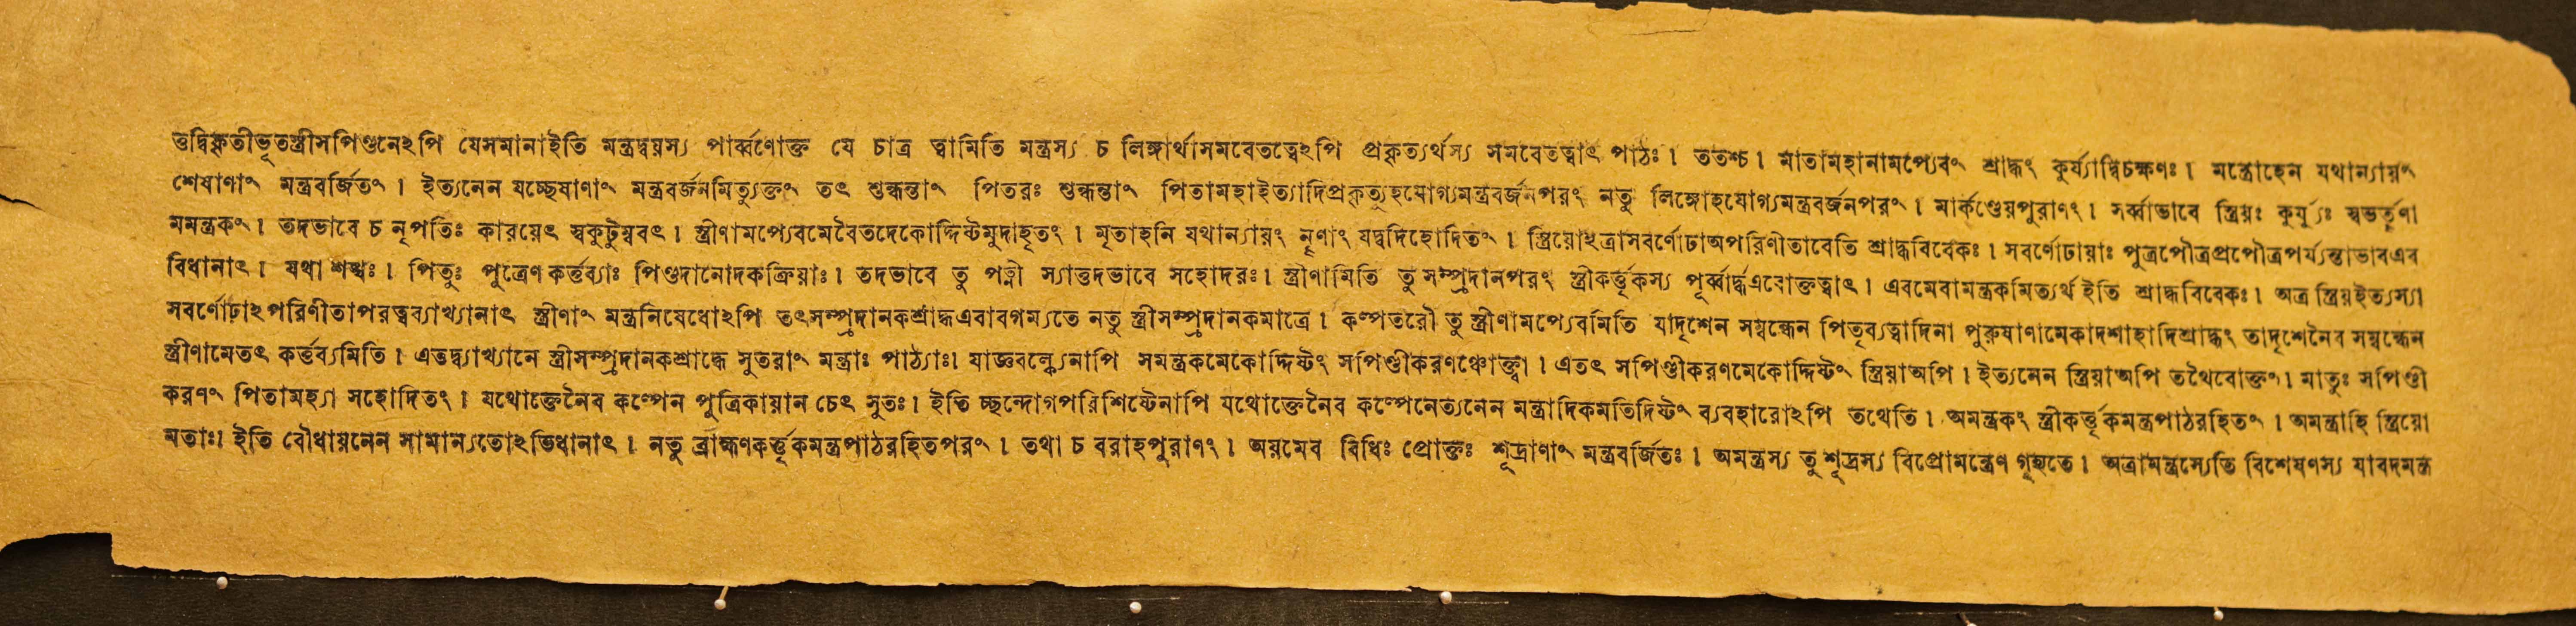 তদ্বিকৃতীভূতস্ত্রীসপিণ্ডনেঽপি যেসমানাইতি মন্ত্রদ্বয়স্য পার্ব্বণোক্ত যে চাত্র ত্বামিতি মন্ত্রস্য চ লিঙ্গার্থাসমবেতত্বেঽপি প্রকৃত্যর্থস্য সমবেতত্বাৎ পাঠঃ। ততশ্চ। মাতামহানামপ্যেবং শ্রাদ্ধং কুর্য্যাদ্বিচক্ষণঃ। মন্ত্রোহেন যথান্যায়ং
শেষাণাং মন্ত্রবর্জিতং। ইত্যনেন যচ্ছেষাণাং মন্ত্রবর্জনমিত্যুক্তং তৎ শুন্ধন্তাং পিতরঃ শুন্ধন্তাং পিতামহাইত্যাদিপ্রকৃত্যূহযোগ্যমন্ত্রবর্জনপরং নতু লিঙ্গোহযোগ্যমন্ত্রবর্জনপরং। মার্কণ্ডেয়পুরাণং। সর্ব্বাভাবে স্ত্রিয়ঃ কুর্যুঃ স্বভর্তৃণা
মমন্ত্রকং। তদভাবে চ নৃপতিঃ কারয়েৎ স্বকুটুম্ববৎ। স্ত্রীণামপ্যেবমেবৈতদেকোদ্দিষ্টমুদাহৃতং। মৃতাহনি যথান্যায়ং নৄণাং যদ্বদিহোদিতং। স্ত্রিয়োঽত্রাসবর্ণোঢাঅপরিণীতাবেতি শ্রাদ্ধবিবেকঃ। সবর্ণোঢায়াঃ পুত্রপৌত্রপ্রপৌত্রপর্য্যন্তাভাবএব
বিধানাৎ। যথা শঙ্খঃ। পিতুঃ পুত্রেণ কর্ত্তব্যাঃ পিণ্ডদানোদকক্রিয়াঃ। তদভাবে তু পত্নী স্যাত্তদভাবে সহোদরঃ। স্ত্রীণামিতি তু সম্প্রদানপরং স্ত্রীকর্ত্তৃকস্য পূর্ব্বার্দ্ধএবোক্তত্বাৎ। এবমেবামন্ত্রকমিত্যর্থ ইতি শ্রাদ্ধবিবেকঃ। অত্র স্ত্রিয়ইত্যস্যা
সবর্ণোঢাঽপরিণীতাপরত্বব্যাখ্যানাৎ স্ত্রীণাং মন্ত্রনিষেধোঽপি তৎসম্প্রদানকশ্রাদ্ধএবাবগম্যতে নতু স্ত্রীসম্প্রদানকমাত্রে। কল্পতরৌ তু স্ত্রীণামপ্যেবমিতি যাদৃশেন সম্বন্ধেন পিতৃব্যত্বাদিনা পুরুষাণামেকাদশাহাদিশ্রাদ্ধং তাদৃশেনৈব সম্বন্ধেন
স্ত্রীণামেতৎ কর্ত্তব্যমিতি। এতদ্ব্যাখ্যানে স্ত্রীসম্প্রদানকশ্রাদ্ধে সুতরাং মন্ত্রাঃ পাঠ্যাঃ। যাজ্ঞবল্ক্যেনাপি সমন্ত্রকমেকোদ্দিষ্টং সপিণ্ডীকরণঞ্চোক্ত্বা। এতৎ সপিণ্ডীকরণমেকোদ্দিষ্টং স্ত্রিয়াঅপি। ইত্যনেন স্ত্রিয়াঅপি তথৈবোক্তং। মাতুঃ সপিণ্ডী
করণং পিতামহ্যা সহোদিতং। যথোক্তেনৈব কল্পেন পুত্রিকায়ান চেৎ সুতঃ। ইতি চ্ছন্দোগপরিশিষ্টেনাপি যথোক্তেনৈব কল্পেনেত্যনেন মন্ত্রাদিকমতিদিষ্টং ব্যবহারোঽপি তথেতি। অমন্ত্রকং স্ত্রীকর্ত্তৃকমন্ত্রপাঠরহিতং। অমন্ত্রাহি স্ত্রিয়ো
মতাঃ। ইতি বৌধায়নেন সামান্যতোঽভিধানাৎ। নতু ব্রাহ্মণকর্ত্তৃকমন্ত্রপাঠরহিতপরং। তথা চ বরাহপুরাণং। অয়মেব বিধিঃ প্রোক্তঃ শূদ্রাণাং মন্ত্রবর্জিতঃ। অমন্ত্রস্য তু শূদ্রস্য বিপ্রোমন্ত্রেণ গৃহ্যতে। অত্রামন্ত্রস্যেতি বিশেষণস্য যাবদমন্ত্র